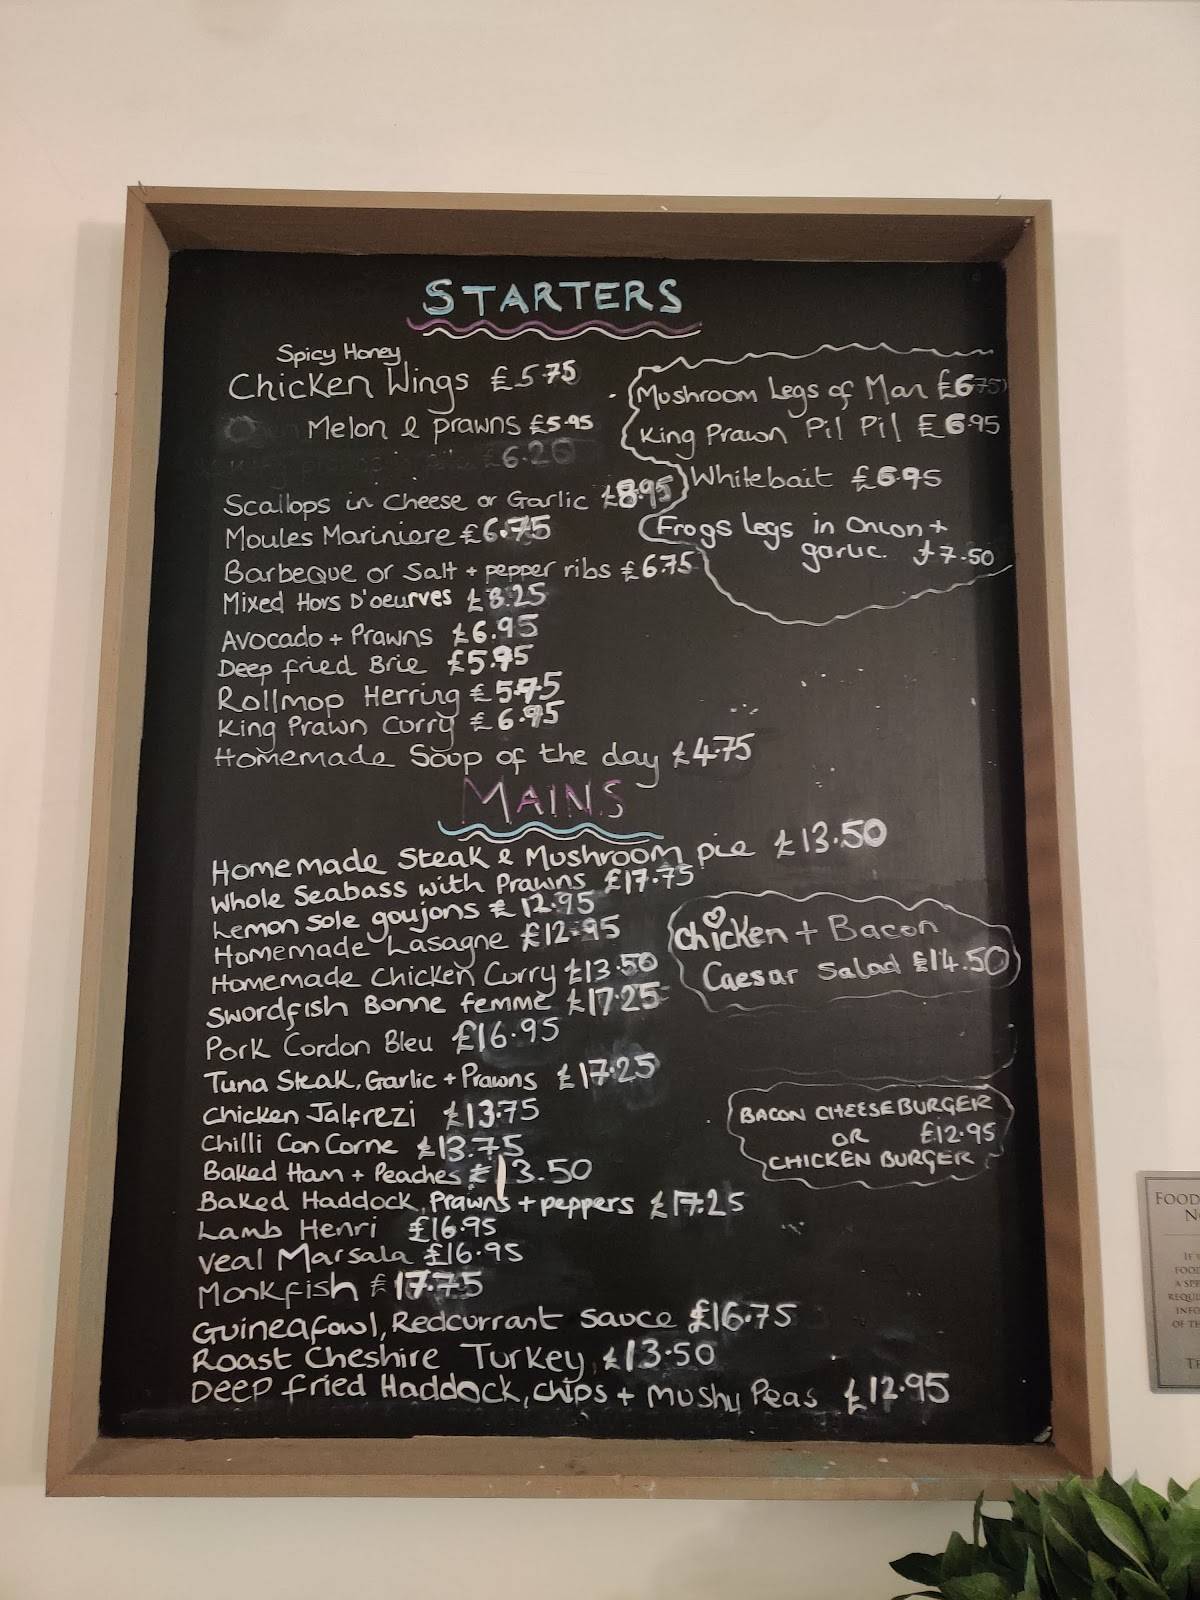 STARTERS
Spicy Honey
Chicken Wings £5.75
Melon & prawns £5.95
£6.20
Scallops in cheese or Garlic £8.95
Moules Mariniere £6.75
Barbeque or Salt + pepper ribs £6.75
Mixed Hors D'oeurves £8.25
Avocado + Prawns £6.95
Deep fried Brie £5.95
Rollmop Herring £5.75
King Prawn Curry £6.95
Homemade Soup of the day £4.75
Mushroom Legs of Man £6.75
King Prawn Pil Pil £6.95
Whitebait £6.95
Frogs Legs in Onion +
garlic. £7.50
MAINS
Homemade Steak & Mushroom pie £13.50
Whole Seabass with Prawns £17.75
Lemon Sole goujons £12.95
Homemade Lasagne £12.95
Homemade Chicken Curry £13.50
Swordfish Bonne femme £17.25
Pork Cordon Bleu £16.95
Tuna Steak, Garlic + Prawns £17.25
Chicken Jalfrezi £13.75
Chilli Con Corne £13.75
Baked Ham + Peaches £13.50
Baked Haddock, Prawns + peppers £17.25
Lamb Henri £16.95
Veal Marsala £16.95
Monkfish £17.75
Guineafowl, Redcurrant Sauce £16.75
Roast Cheshire Turkey £13.50
Deep fried Haddock, chips + Mushy Peas £12.95
Chicken + Bacon
Caesar Salad £14.50
BACON CHEESEBURGER
OR £12.95
CHICKEN BURGER
FOOD
N
IF
FOOD
A SPE
REQUI
INFO
OF TH
T